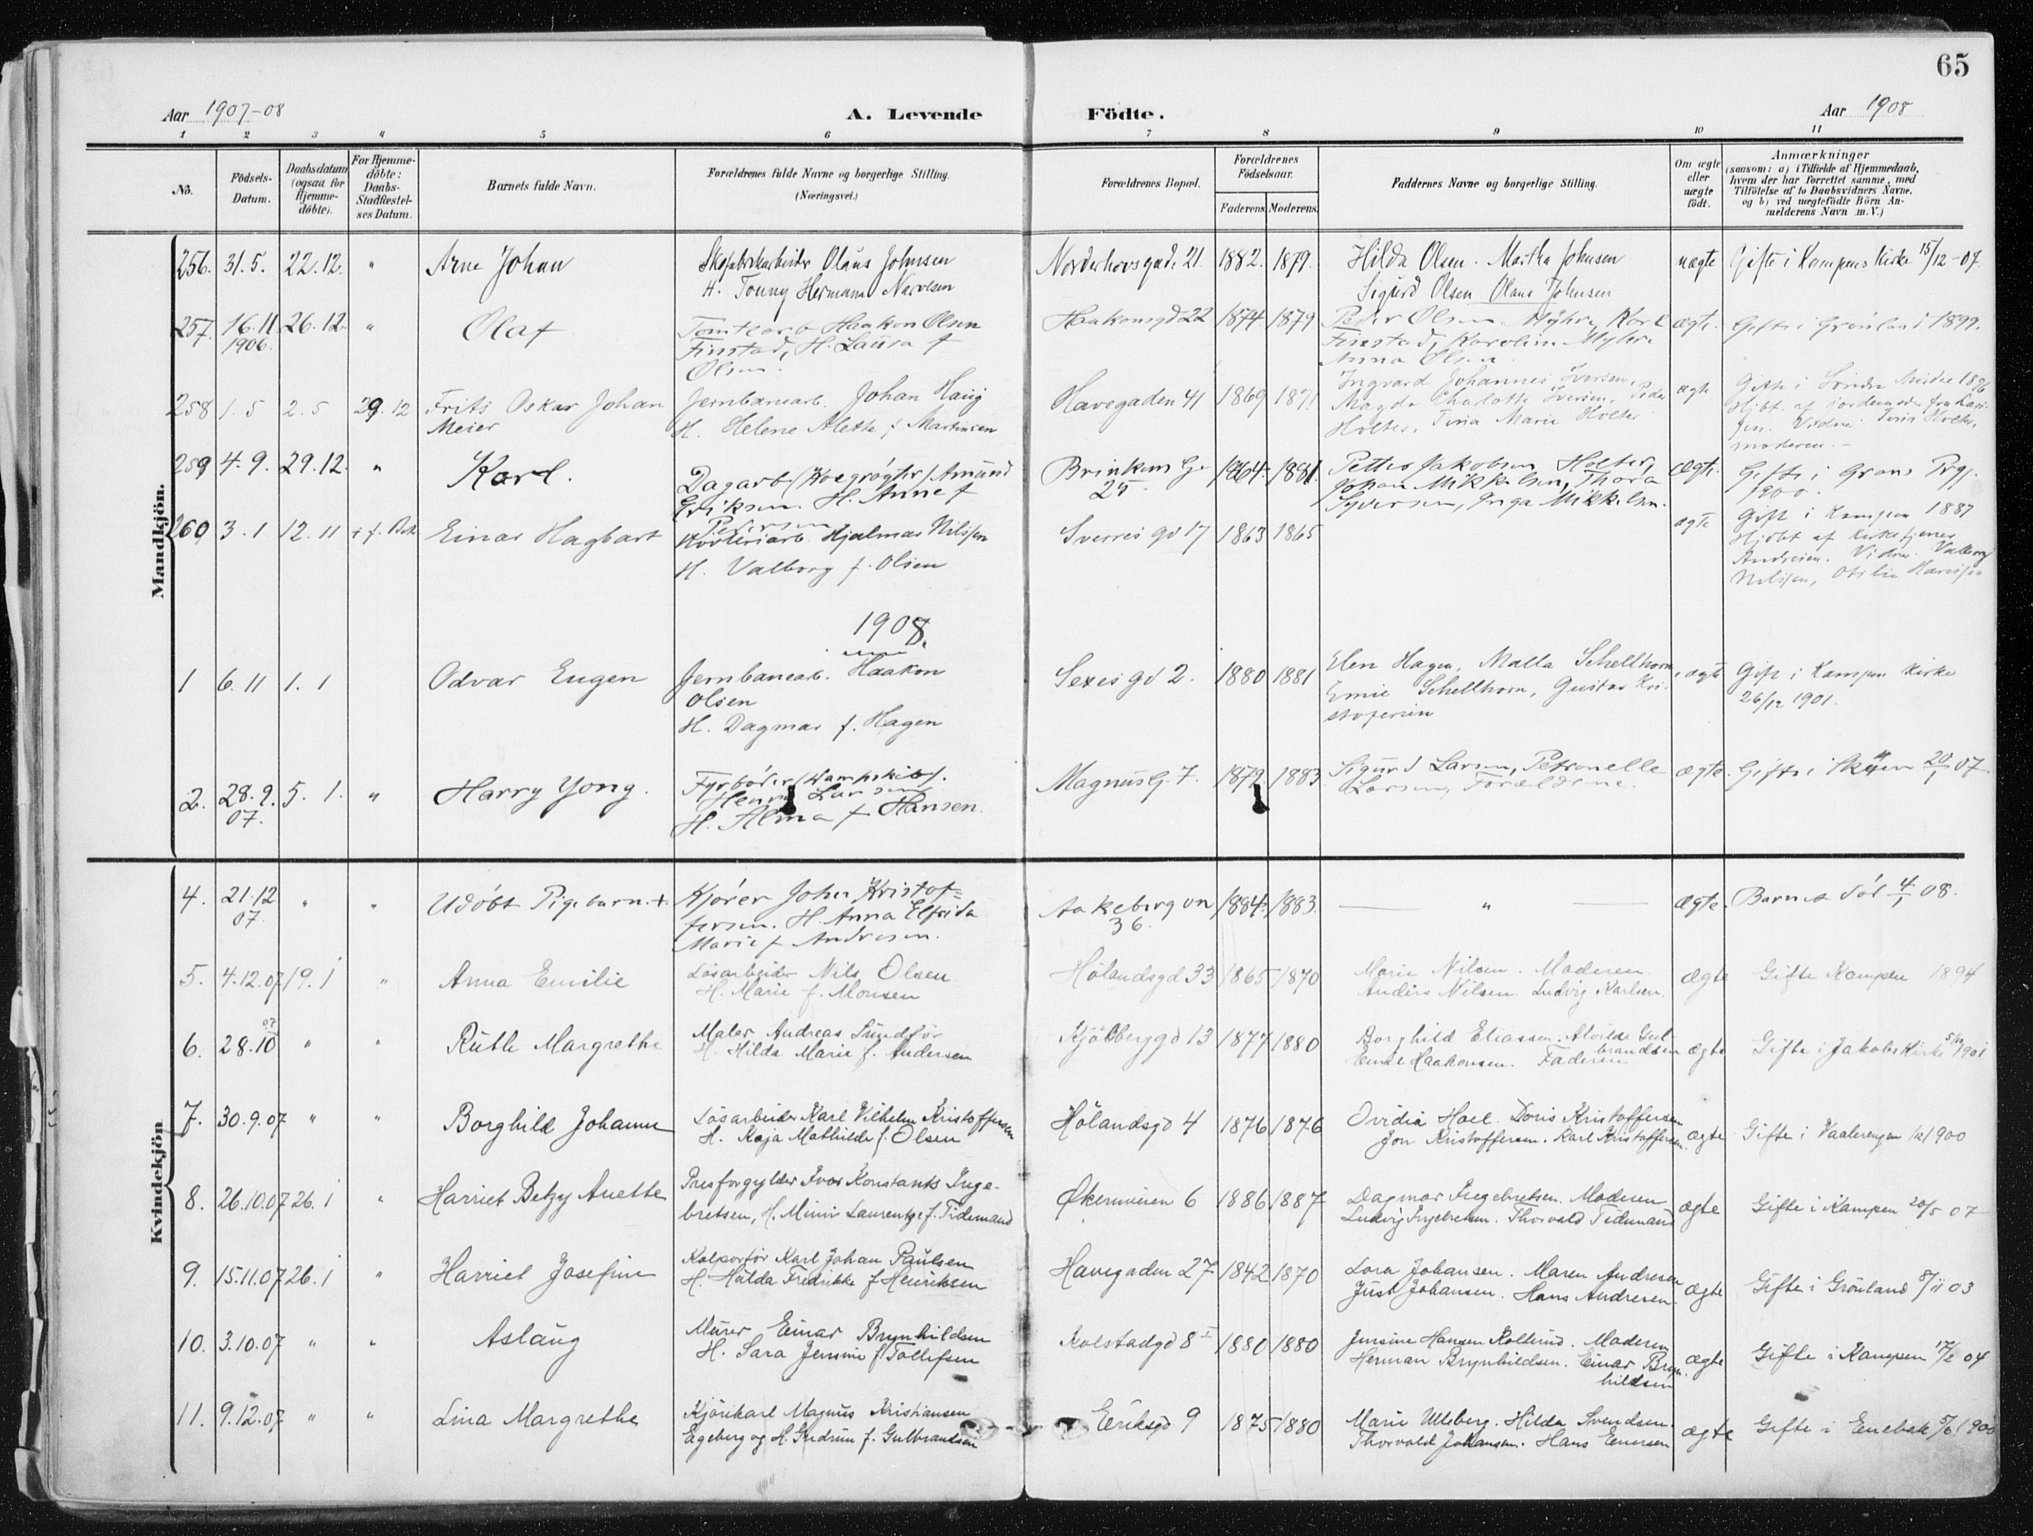 65
Aar 1907-08 A. Levende Födte. Aar 1908
1 2 3 4 5 6 7 8 9 10 11
No. Födsels-Datum. Daabsdatum (ogsaa for Hjemme-döbte). For Hjemme-döbte: Daabs-Stadfæstel-ses Datum. Barnets fulde Navn. Forældrenes fulde Navne og borgerlige Stilling. (Næringsvei.) Forældrenes Bopæl. Forældrenes Födselsaar. Faderens. Moderens. Faddernes Navne og borgerlige Stilling. Om ægte eller uægte födt. Anmærkninger (saasom: a) i Tilfælde af Hjemmedaab, hvem der har forrettet samme, med Tilföielse af to Daabsvidners Navne, og b) ved uægtefödte Börn An-melderens Navn m. V.)
Mandkjön.
256. 31.5. 22.12. " Arne Johan Olaus Johnsen Norderhovsgade 21 1882. 1879. Hilda Olsen. Martha Johnsen uægte Gifte i Kampens Kirke 15/12-07.
H. Tonny Hermana Sigurd Olsen Olaus Johnsen
257. 16.11 26.12. " Olaf Haakon Olsen Haakonsgd 22 1874 1879 Peder Olsen Myhre, Karl ægte. Gifte i Grønland 1899.
1906. Finstad, H. Laura f Finstad, Karoline Myhre
Olsen. Anna Olsen
258 1.5 2.5 29.12 Frits Oskar Johan Jernbanearb. Johan Haug Havegaden 41 1869 1871 Ingvard Johannes Iversen, ægte Gift i
Meier H. Helene Alette f. Martinsen Magda Charlotte Iversen, Peder
Holter, Tina Marie Holter
moderen. -
259 4.9. 29.12. " Karl. Dagarb. Amund Brinkens G. 1864. 1881. Petter Jakobsen Holter, ægte. Gifte i Grans Prgj.
Eriksen. H. Anne f 25. Johan Mikkelsen, Thora 1900.
Pedersen Syversen, Inga Mikkelsen.
260 3.1 12.11 Einar Hagbart Hjalmar Nilssen Sverres gd 17 1863 1865 ægte Gift i Kampen 1887
H. Valborg f. Olsen Hjdbt af Kirketjener
Andresen. Vidner Valborg
Nilssen,
1908.
1 6.11 1.1 Odvar Eugen Jernbanearb. Haakon Sexes gd 2. 1880 1881 Elen Hagen, Malla Schellhorn, ægte Gift i Kampen Kirke
Olsen Emie Schellhorn, Gustav Kri- 26/12 1901.
H. Dagmar f. Hagen stofersen
2. 28.9. 5.1. " Harry Yong. Fyrbøder (Dampskib). Magnus G. 7. 1879. 1883 Sigurd Larsen, Petronelle ægte. Gifte i 07
07. Henry Larsen Larsen, Forældrene.
H. Alma f Hansen.
Kvindekjön
4. 21.12 " " Udøbt Pigebarn. + Kjører Johan Kristof= Aakebergvn 1884. 1883. " ægte. Barnet død 4/1 08.
07. fersen. H. Anna Elfrida 36.
Marie f Andresen.
5. 4.12.07 19.1 " Anna Emilie Løsarbeider Nils Olsen Hølandsgd 33 1865 1870 Marie Nilsen. Moderen. ægte Gifte Kampen 1894
H. Marie f. Monsen Anders Nilsen. Ludvig Karlsen.
6. 28.10 07 " " Ruth Margrethe Maler Andreas Sundfør Kjølberggd 13 1877 1880 Borghild Eliassen. ægte Gifte i Jakobs Kirke 1901
H. Hilda Marie f. Andersen Haakonsen. Faderen
7. 30.9.07 " " Borghild Johanne Løsarbeider Karl Vilhelm Kristoffersen Hølandsgd 4 1876 1876 Ovidia Hoel. Doris Kristoffersen ægte Gifte i Vaalerengen 1900
H. Kaja Mathilde f. Olsen Jon Kristoffersen. Karl Kristoffersen.
8. 26.10.07 26.1 " Harriet Betzy Anette Presforgylder Ivar Konstants Inge- Økernveien 6 1886 1887 Dagmar Ingebretsen. Moderen ægte Gifte i Kampen 20/5 07
bretsen, H. Mimi Laurentze f. Tidemand Ludvig Ingebretsen. Thorvald Tidemand
9. 15.11.07 26.1 " Harriet Josefine Kolportør Karl Johan Paulsen Havegaden 27 1842 1870 Lora Johansen. Maren Andresen ægte Gifte i Grønland 8/11 03
H. Hulda Fredrikke f Henriksen Just Johansen. Hans Andresen.
10. 3.10.07 " " Aslaug Murer Einar Brynhildsen Kolstadgd 8 I 1880 1880 Jensine Hansen Kollerud. Moderen ægte Gifte i Kampen 04
H. Sara Jensine f Tollefsen Herman Brynhildsen. Einar Bryn-
hildsen
11. 9.12.07 " " Lina Margrethe Kjørekarl Magnus Kristiansen Eriksgd 9 1875 1880 Marie Ulleberg. Hilda Svendsen. ægte Gifte i Enebak 5/6 1900
Egeberg og H. Gudrun f. Gulbrandsen Thorvald Johansen. Hans Enersen